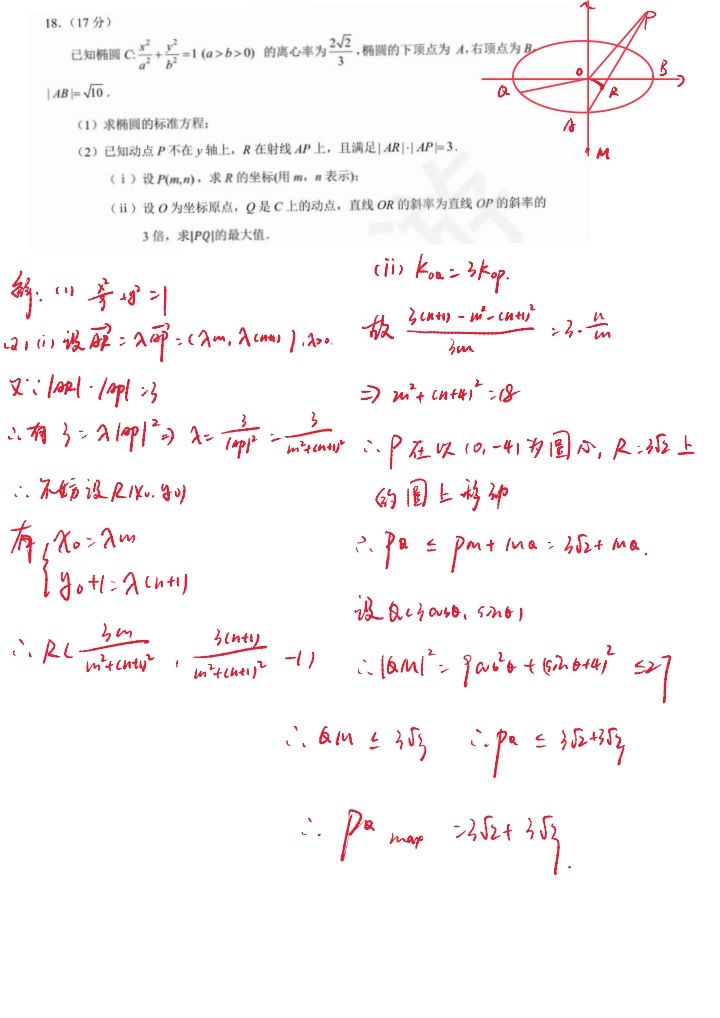 18.（17分）
已知椭圆 C: x²/a² + y²/b² = 1 (a>b>0) 的离心率为 2√2/3，椭圆的下顶点为 A，右顶点为 B，
|AB|=√10．
（1）求椭圆的标准方程；
（2）已知动点 P 不在 y 轴上，R 在射线 AP 上，且满足|AR|·|AP|=3．
（ⅰ）设 P(m,n)，求 R 的坐标(用 m，n 表示)；
（ⅱ）设 O 为坐标原点，Q 是 C 上的动点，直线 OR 的斜率为直线 OP 的斜率的
3 倍，求|PQ|的最大值．
P
O
B
Q
R
A
M
解: (1) x²/9 + y² = 1
(2) (i) 设 AR = λAP = (λm, λ(n+1)), λ>0.
又∵ |AR|·|AP| = 3
∴ 有 3 = λ|AP|² ⇒ λ = 3/|AP|² = 3/(m²+(n+1)²)
∴ 不妨设 R(x₀, y₀)
有 { x₀ = λm
y₀+1 = λ(n+1)
∴ R( 3m/(m²+(n+1)²) , 3(n+1)/(m²+(n+1)²) -1)
(ii) k_OR = 3k_OP.
故 (3(n+1) - m² - (n+1)²)/3m = 3·n/m
⇒ m² + (n+4)² = 18
∴ P 在以 (0,-4) 为圆心, R=3√2 上
的圆上移动
∴ PQ ≤ PM + MQ = 3√2 + MQ.
设 Q(3cosθ, sinθ)
∴ |QM|² = 9cos²θ + (sinθ+4)² ≤ 27
∴ QM ≤ 3√3 ∴ PQ ≤ 3√2+3√3
∴ PQ max = 3√2 + 3√3.